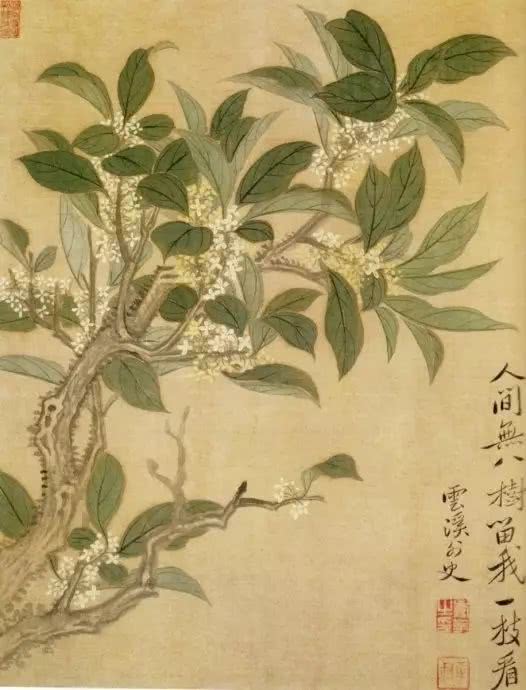 人間無八樹留我一枝看
雲溪外史